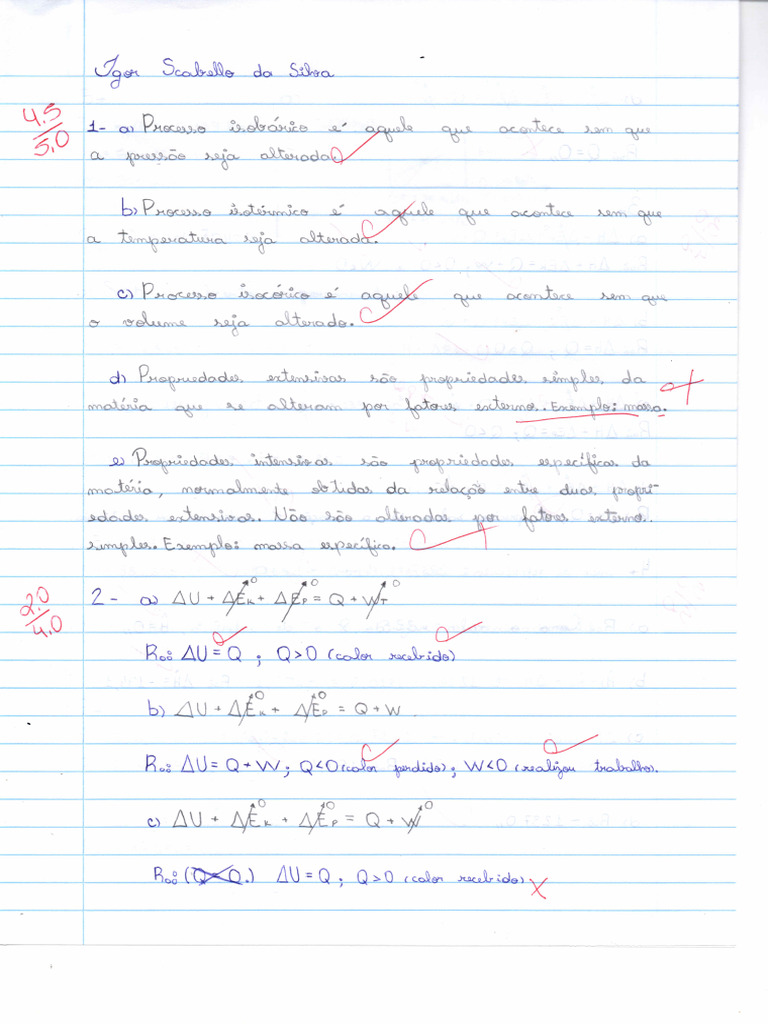 Igor Scabello da Silva
4.5/5.0
1- a) Processo isobárico é aquele que acontece sem que
a pressão seja alterada.
b) Processo isotérmico é aquele que acontece sem que
a temperatura seja alterada.
c) Processo isocórico é aquele que acontece sem que
o volume seja alterado.
d) Propriedades extensivas são propriedades simples da
matéria que se alteram por fatores externos. Exemplo: massa.
e) Propriedades intensivas são propriedades específicas da
matéria, normalmente obtidas da relação entre duas propri-
edades extensivas. Não são alteradas por fatores externos
simples. Exemplo: massa específica.
2.0/4.0
2- a) ΔU + ΔEK + ΔEP = Q + WT
R: ΔU = Q ; Q>0 (calor recebido)
b) ΔU + ΔEK + ΔEP = Q + W
R: ΔU = Q + W ; Q<0 (calor perdido); W<0 (realizou trabalho).
c) ΔU + ΔEK + ΔEP = Q + W
R: ΔU = Q ; Q>0 (calor recebido)